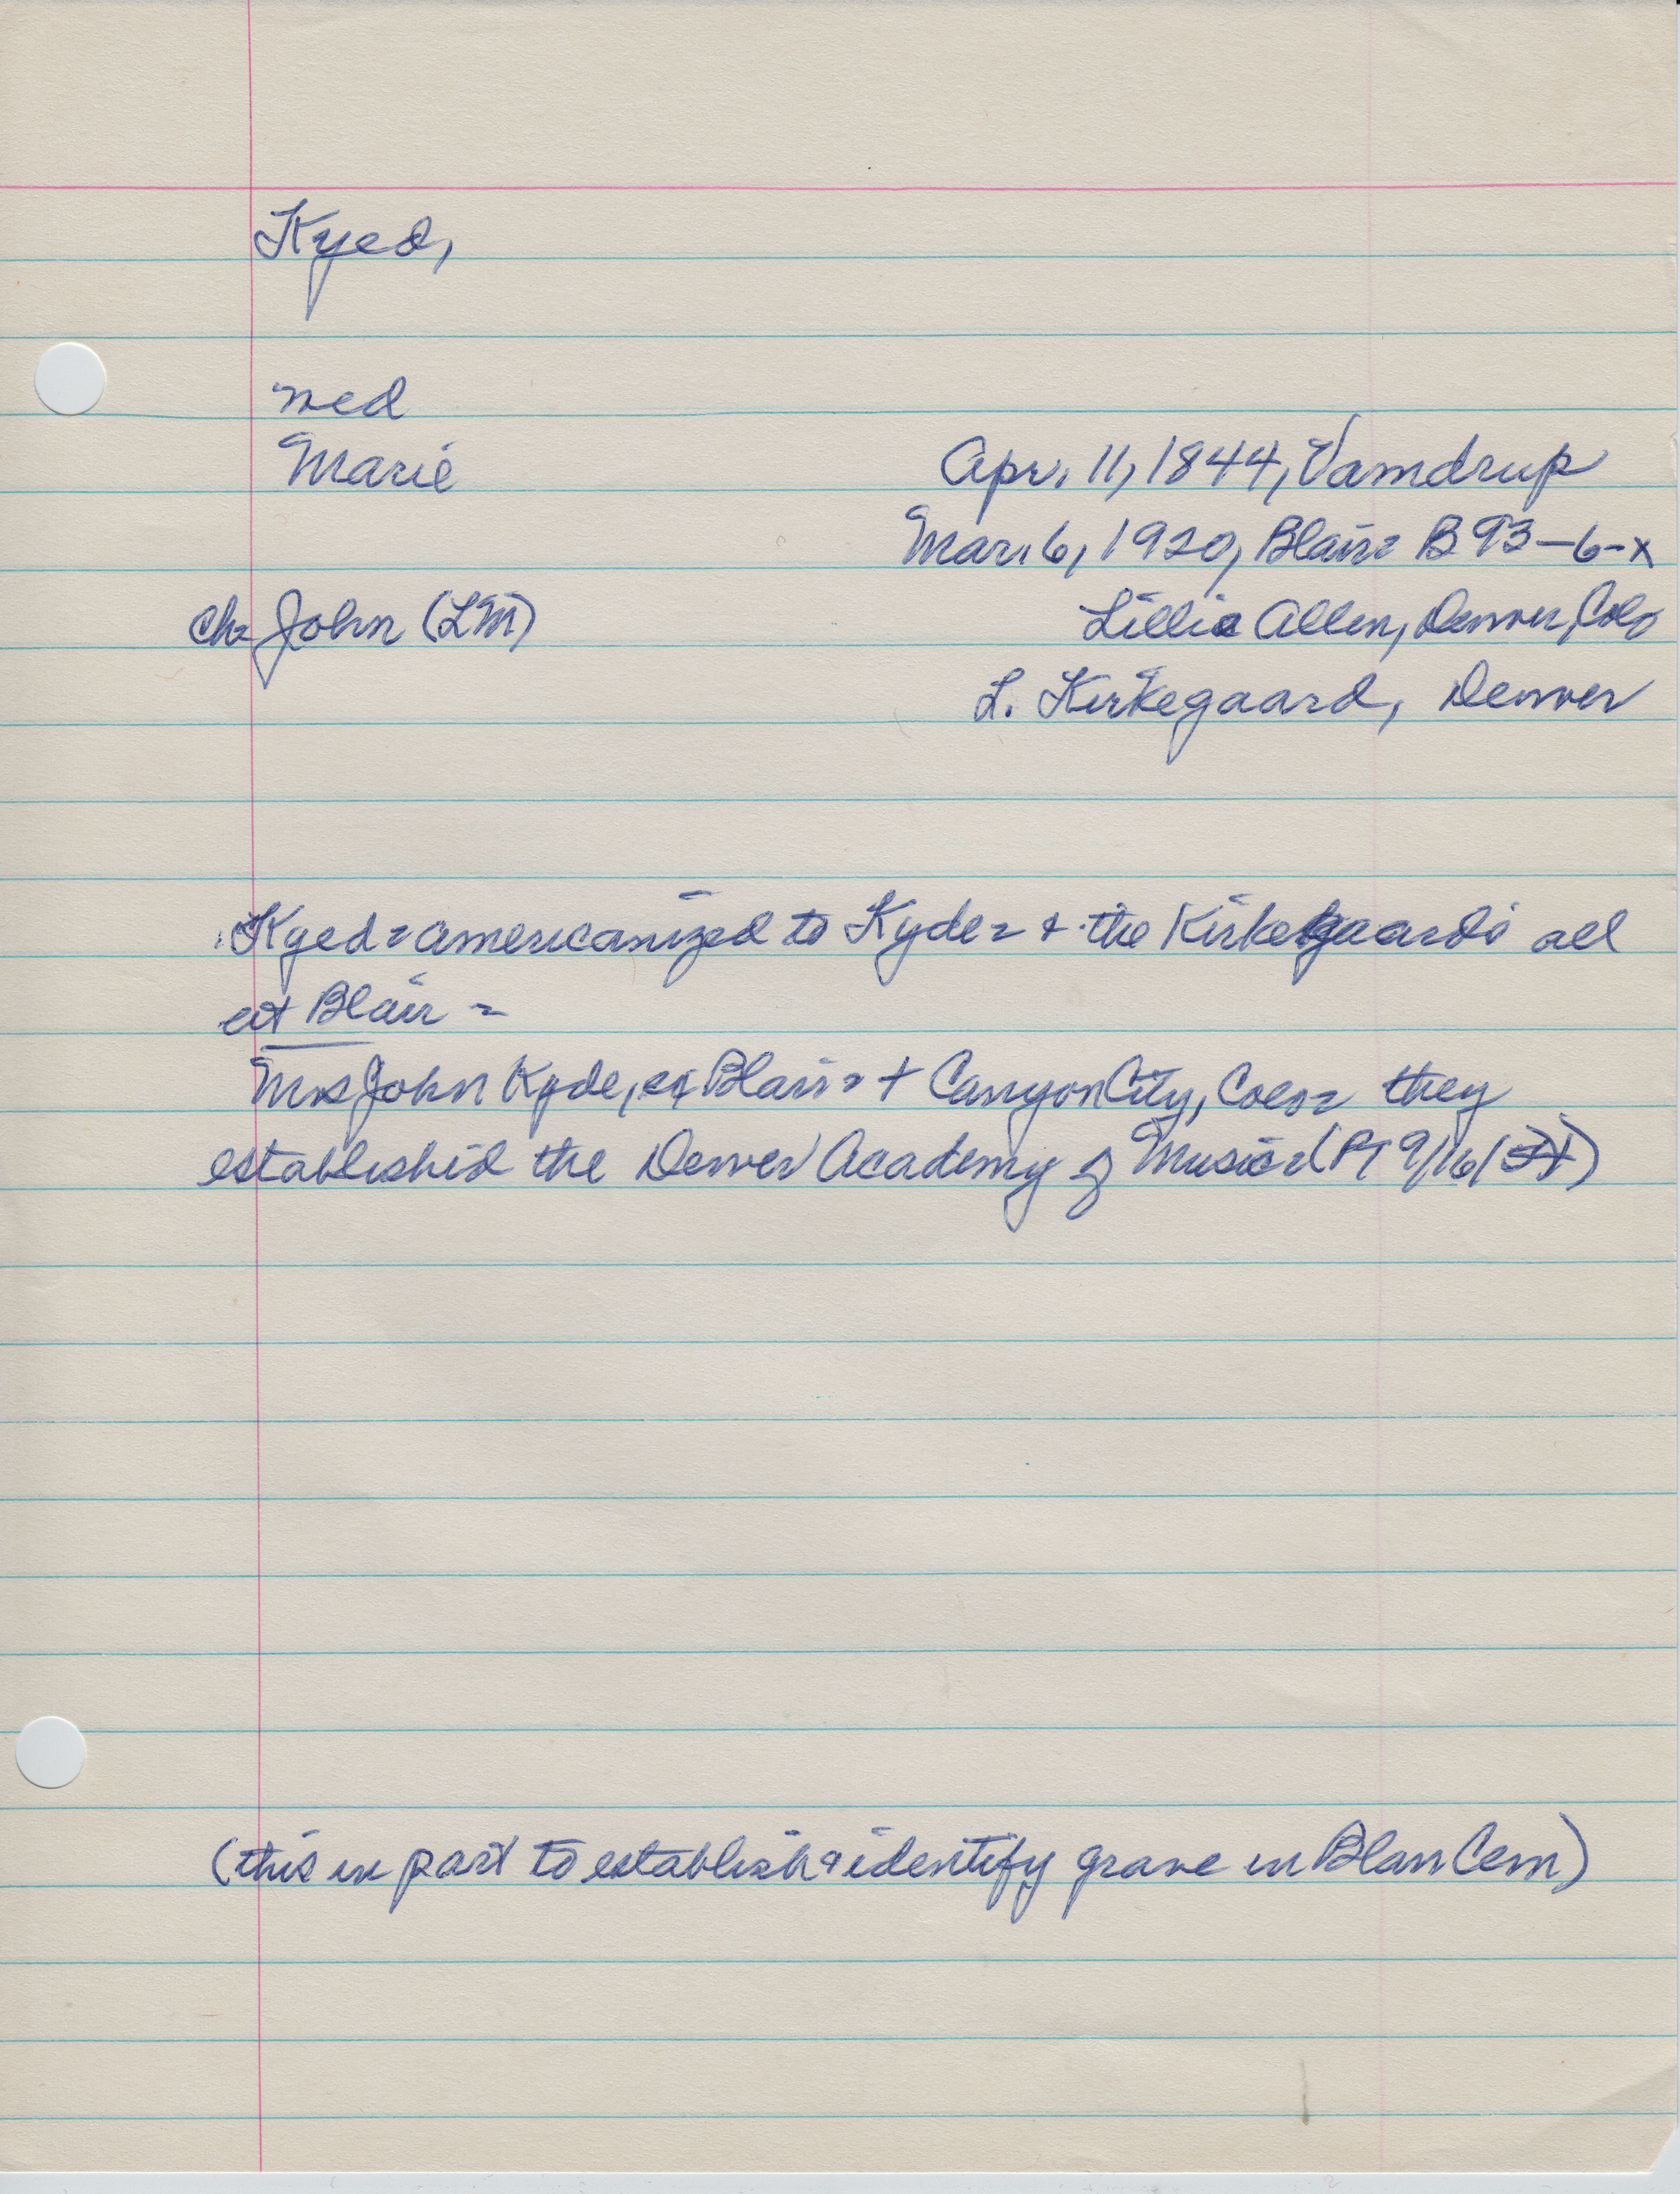 Kyed,
med
Marie
Apr. 11, 1844, Vamdrup
Mar. 6, 1920, Blair= B 93-6-x
ch= John (LM)
Lillie Allen, Denver, Colo
L. Kirkegaard, Denver
Kyed= americanized to Kyde= & the Kirkegaards all
at Blair =
Mrs John Kyde, ex Blair= + Canyon City, Colo= they
established the Denver Academy of Music= (PT 9/16/)
(this in part to establish & identify grave in Blair Cem)